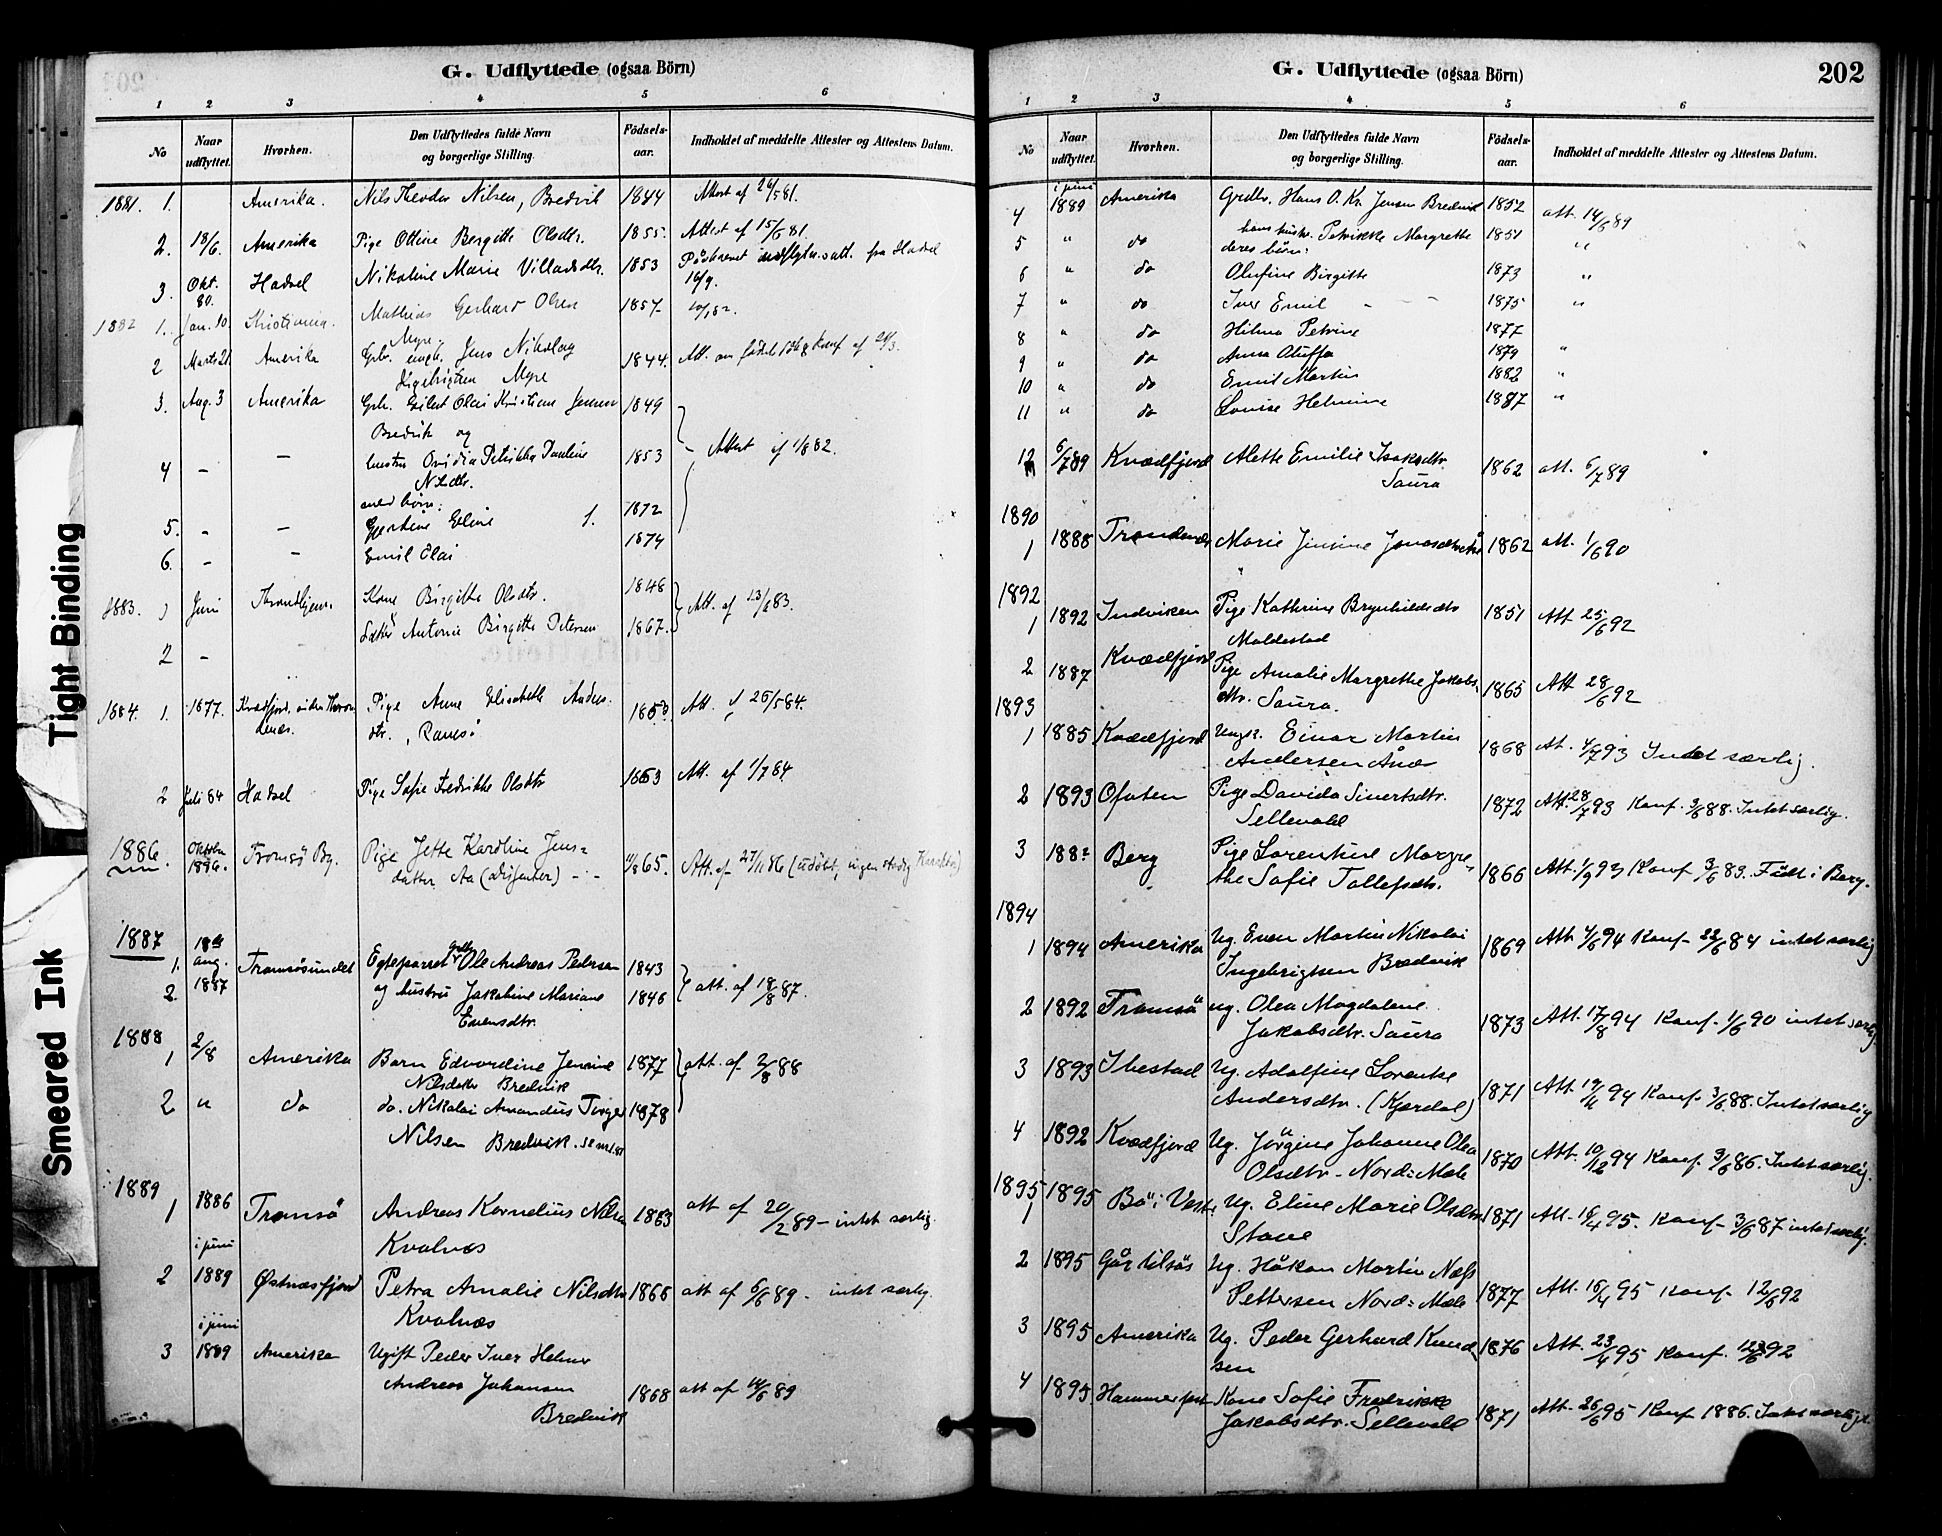 G. Udflyttede (ogsaa Börn)
1 2 3 4 5 6
No Naar udflyttet. Hvorhen. Den Udflyttedes fulde Navn og borgerlige Stilling. Födsels- aar. Indholdet af meddelte Attester og Attestens Datum.
1881. 1. Amerika. Nils Theodor Nilsen, Bredvik 1844 Attest af 24/5 81.
2. 18/6. Amerika Pige Ottine Bergitte Olsdtr. 1855. Attest af 15/6 81.
3. Okt. 80. Hadsel Nikoline Marie Villadsdtr. 1853 fra Hadsel
16/9.
1882 1. Jan. 10. Kristiania. Mathias Gerhard Olsen 1857
Myre
2 Marts 21. Amerika Jens Nikolay 1844. Att. om födsel
Myre
3. Aug. 3 Amerika Olai Kristian Jensen 1849
Bredvik og
4 - - hustru Ovidia Petrikka Pauline 1853 Attest af 1/8 82.
Nilsdtr.
med börn:
5. - - Eline 1872
6. - - Emil Olai 1874
1883. 1 Juni Throndhjem. Kone Birgitte Olsdtr. 1848 Att. af 13/6 83.
2 - Antonie Birgitte Petersen 1867.
1884. 1. 1877. Pige Anne Elisabeth Anders- Att. af 26/5 84.
dtr.,
2 Juli 84 Hadsel Pige Sofie Fredrikke Olsdtr 1863 Att. af 1/7 84.
1886. Oktober 1886. Tromsö By. Pige Jette Karoline Jens=
datter Aa (Dissenter) - - 65. Att. af 27/11 86
1887 18de aug. 1887
1. Tromsösundet Egteparret Ole Andreas Pedersen 1843
2. og hustru Jakobine Mariane 1846 att. af 18/8 87.
Evensdtr.
1888
1 2/8 Amerika Barn Edvardine Jensine 1877 att. af 2/8 88
Nilsdatter Bredvik
2 " do do. Nikolai Amandus Torger 1878
Nilsen Bredvik.
1889
1 1886 Tromsö Andreas Kornelius Nilsen 1863 att af 20/2 89 - intet særlig.
Kvalnæs
2 i juni 1889 Østnæsfjord Petra Amalie Nilsdtr 1868 att af 6/6 89. intet særlig.
Kvalnæs
3 i juni 1889 Amerika Ugift Peder Iver Helmer
Andreas Johansen 1868 att af 14/6 89
Bredvik
G. Udflyttede (ogsaa Börn)
202
1 2 3 4 5 6
No Naar udflyttet. Hvorhen. Den Udflyttedes fulde Navn og borgerlige Stilling. Födsels- aar. Indholdet af meddelte Attester og Attestens Datum.
4 i juni 1889 Amerika Grdbr. Hans O. Kr. Jensen Bredvik 1852 att. 14/6 89
5 " do hans hustr. Petrikke Margrethe 1851 "
deres börn:
6 " do Olufine Birgitte 1873 "
7 " do Iver Emil - - 1875 "
8 " do Hilma Petrine 1877
9 " do Anna Oluffa 1879 "
10 " do Emil Martin 1882 "
11 " do Lovise Helmine 1887 "
12 6/7 89 Kvædfjord Alette Emilie Isaksdtr. 1862 att. 6/7 89
Saura
1890
1 1888 Trondenes Marie Jensine 1862 att. 1/6 90
1892
1 1892 Indviken Pige Kathrine Brynhildsdtr 1851 Att 25/6 92
Moldestad
2 1887 Kvædfjord Pige Amalie Margrethe Jakobs- 1865 Att 28/6 92
dtr. Saura.
1893
1 1885 Kvædfjord Ungk. Einar Martin 1868 Att. 4/7 93 Intet særlig.
Andersen Ånes
2 1893 Ofoten Pige Davida Sivertsdtr. 1872 Att. 28/7 93 Konf. 3/6 88. Intet særlig.
Sellevold
3 Berg Pige Lorentine Margre- 1866 Att. 1/9 93 Konf 3/6 83. Födt i Berg.
the Sofie Tollefsdtr.
1894
1 1894 Amerika Ug. Even Martin Nikolai 1869 Att 4/6 94 Konf. 22/6 84 intet særlig
Ingebrigtsen Bredvik
2 1892 Tromsö ug. Olea Magdalene 1873 Att. 17/8 94 Konf. 1/6 90 intet særlig
Jakobsdtr. Saura
3 1893 Ibestad Ug. Adolfine Lorentse 1871 Att. 94 Konf. 3/6 88. Intet særlig
Andersdtr. (Kjerdal)
4 1892 Kvædfjord Ug. Jörgine Johanne Olea 1870 Att. 10/12 94 Konf. 86. Intet særlig.
Olsdtr - Nord=Mæle
1895
1 1895 Bö i Vest. Ug. Eline Marie Olsdtr 1871 Att. 16/4 95. Konf. 3/6 87 intet særlig.
Stave
2 1895 Går til sös Ug. Håkon Martin Næss 1877 Att. 16/4 95 Konf. 12/6 92
Pettersen Nord=Mæle
3 1895 Amerika Ug. Peder Gerhard Knud- 1876 Att. 23/4 95 Konf. 12/6 92
sen
4 1895 Hammerfest Kone Sofie Fredrikke 1871 Att. 26/6 95 Konf 1886. Intet særligt.
Jakobsdtr. Sellevold
Tight Binding
Smeared Ink